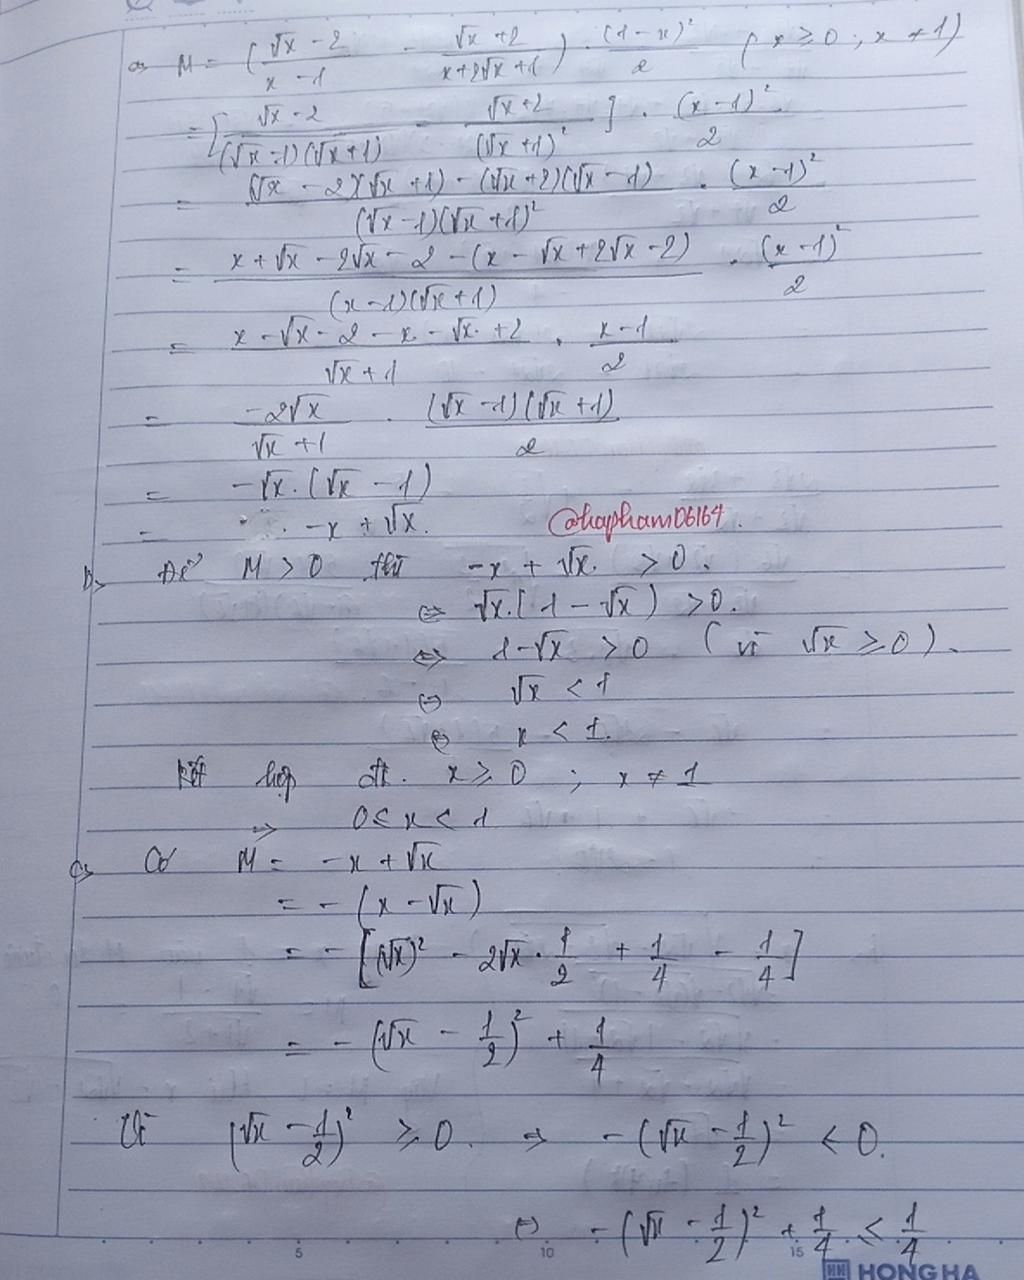 a, M = (\frac{√x - 2}{x - 1} - \frac{√x + 2}{x + 2√x + 1}) . \frac{(1 - x)^2}{2} (x ≥ 0 ; x ≠ 1)
= [\frac{√x - 2}{(√x - 1)(√x + 1)} - \frac{√x + 2}{(√x + 1)^2}] . \frac{(x - 1)^2}{2}
= \frac{(√x - 2)(√x + 1) - (√x + 2)(√x - 1)}{(√x - 1)(√x + 1)^2} . \frac{(x - 1)^2}{2}
= \frac{x + √x - 2√x - 2 - (x - √x + 2√x - 2)}{(x - 1)(√x + 1)} . \frac{(x - 1)^2}{2}
= \frac{x - √x - 2 - x - √x + 2}{√x + 1} . \frac{x - 1}{2}
= \frac{-2√x}{√x + 1} . \frac{(√x - 1)(√x + 1)}{2}
= -√x . (√x - 1)
= -x + √x. @hapham06164.
b, Để M > 0 thì -x + √x > 0.
⇔ √x.(1 - √x) > 0.
⇔ 1 - √x > 0 (vì √x ≥ 0).
⇔ √x < 1
⇔ x < 1.
Kết hợp đk. x ≥ 0 ; x ≠ 1
⇒ 0 ≤ x < 1
c, Có M = -x + √x
= - (x - √x)
= - [(√x)^2 - 2√x . \frac{1}{2} + \frac{1}{4} - \frac{1}{4}]
= - (√x - \frac{1}{2})^2 + \frac{1}{4}
Vì (√x - \frac{1}{2})^2 ≥ 0. ⇒ - (√x - \frac{1}{2})^2 < 0.
⇔ - (√x - \frac{1}{2})^2 + \frac{1}{4} ≤ \frac{1}{4}
5 10 15
HH HONG HA